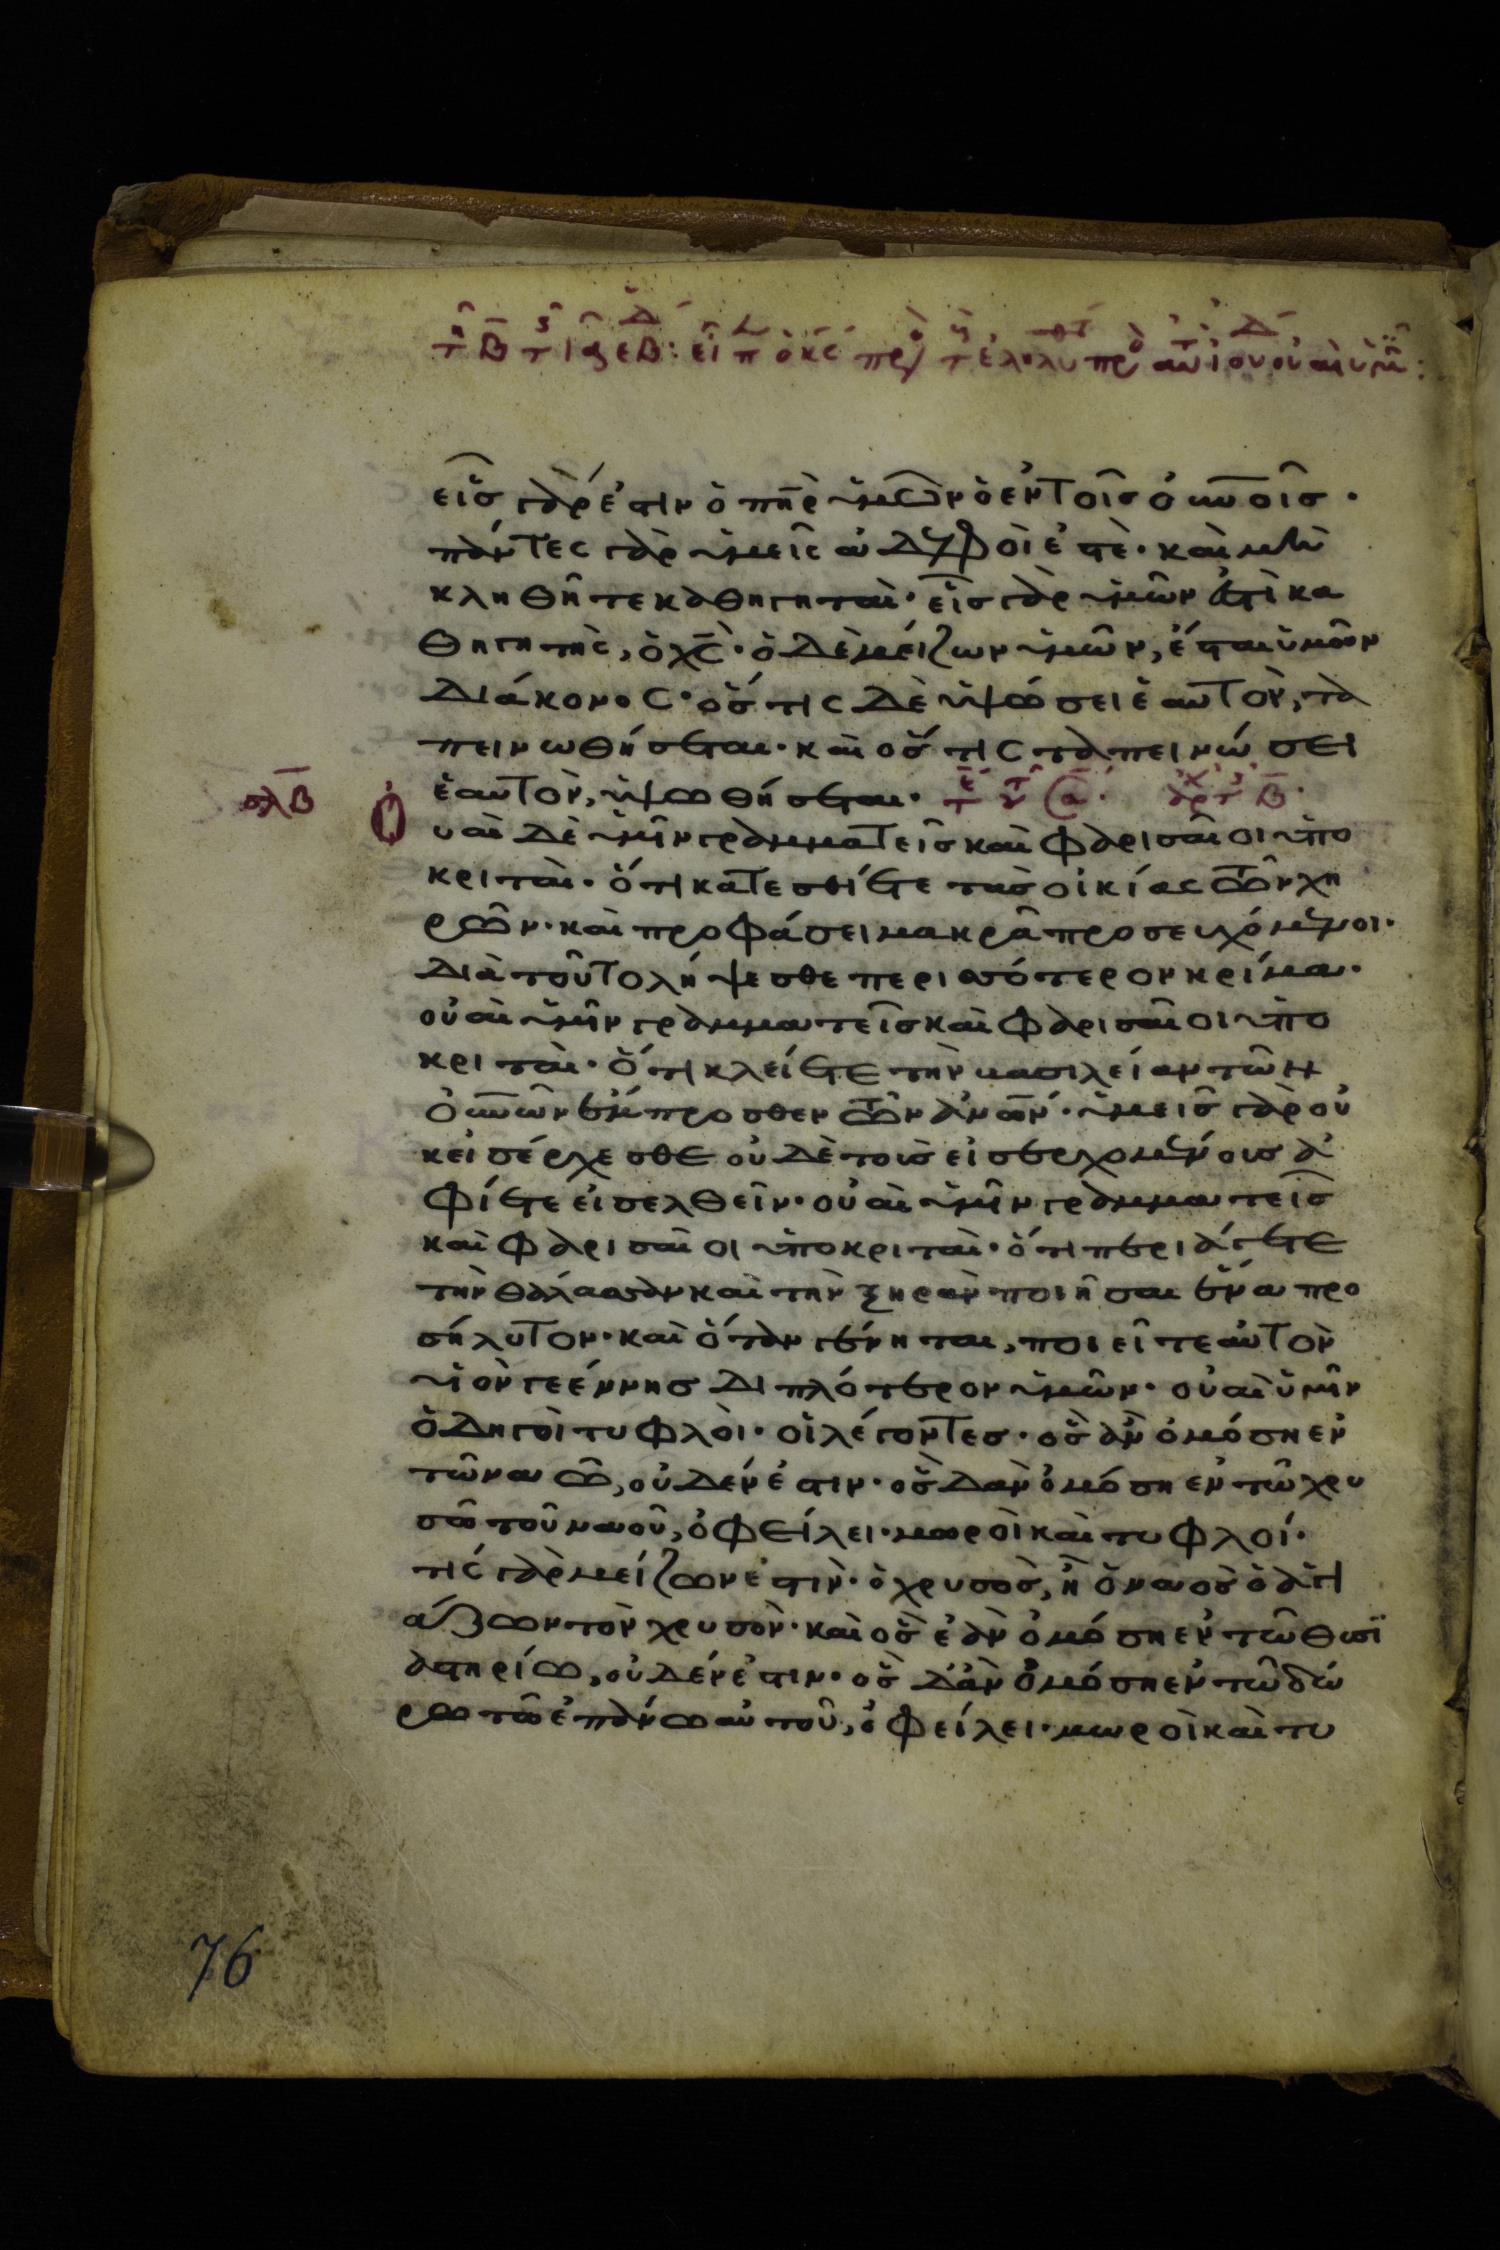 εἷς γὰρ ἐστιν ὁ πηρ ὑμῶν ὁ ἐν τοῖς οὐνοῖς·
πάντες γὰρ ὑμεῖς ἀδελφοὶ ἐστὲ· καὶ μὴ
κληθῆτε καθηγηταὶ· εἷς γὰρ ὑμῶν ἐστὶ κα
θηγητὴς, ὁ χς· ὁ δὲ μείζων ὑμῶν, ἔσται ὑμῶν
διάκονος· ὅστις δὲ ὑψώσει ἑαυτὸν, τα
πεινωθήσεται· καὶ ὅστις ταπεινώσει
ἑαυτὸν, ὑψωθήσεται·
σλβ Ο
υαὶ δὲ ὑμῖν γραμματεῖς καὶ φαρισαῖοι ὑπο
κριταὶ· ὅτι κατεσθίετε τὰς οἰκίας τῶν χη
ρῶν· καὶ προφάσει μακρᾶ προσευχόμενοι·
διὰ τοῦτο λήψεσθε περισσότερον κρίμα·
οὐαὶ ὑμῖν γραμματεῖς καὶ φαρισαῖοι ὑπο
κριταὶ· ὅτι κλείετε τὴν βασιλείαν τῶν
οὐνῶν ἔμπροσθεν τῶν ἀνων· ὑμεῖς γὰρ οὐ
κ εἰσέρχεσθε οὐδὲ τοὺς εἰσερχομένους ἀ
φίετε εἰσελθεῖν· οὐαὶ ὑμῖν γραμματεῖς
καὶ φαρισαῖοι ὑποκριταὶ· ὅτι περιάγετε
τὴν θάλασσαν καὶ τὴν ξηρὰν ποιῆσαι ἕνα προ
σήλυτον· καὶ ὅταν γένηται, ποιεῖτε αὐτὸν
υἱὸν γεέννης διπλότερον ὑμῶν· οὐαὶ ὑμῖν
ὁδηγοὶ τυφλοὶ· οἱ λέγοντες· ὃς ἂν ὀμόση ἐν
τῶ ναῶ, οὐδέν ἐστιν· ὃς δ ἂν ὀμόση ἐν τῶ χρυ
σῶ τοῦ ναοῦ, ὀφείλει· μωροὶ καὶ τυφλοί·
τίς γὰρ μείζων ἐστὶν· ὁ χρυσὸς, ἢ ὁ ναὸς ὁ ἁγι
άζων τὸν χρυσὸν· καὶ ὃς ἐὰν ὀμόση ἐν τῶ θυσϊ
αστηρίω, οὐδέν ἐστιν· ὃς δ ἂν ὀμόση ἐν τῶ δώ
ρω τῶ ἐπάνω αὐτοῦ, ὀφείλει· μωροὶ καὶ τυ
76